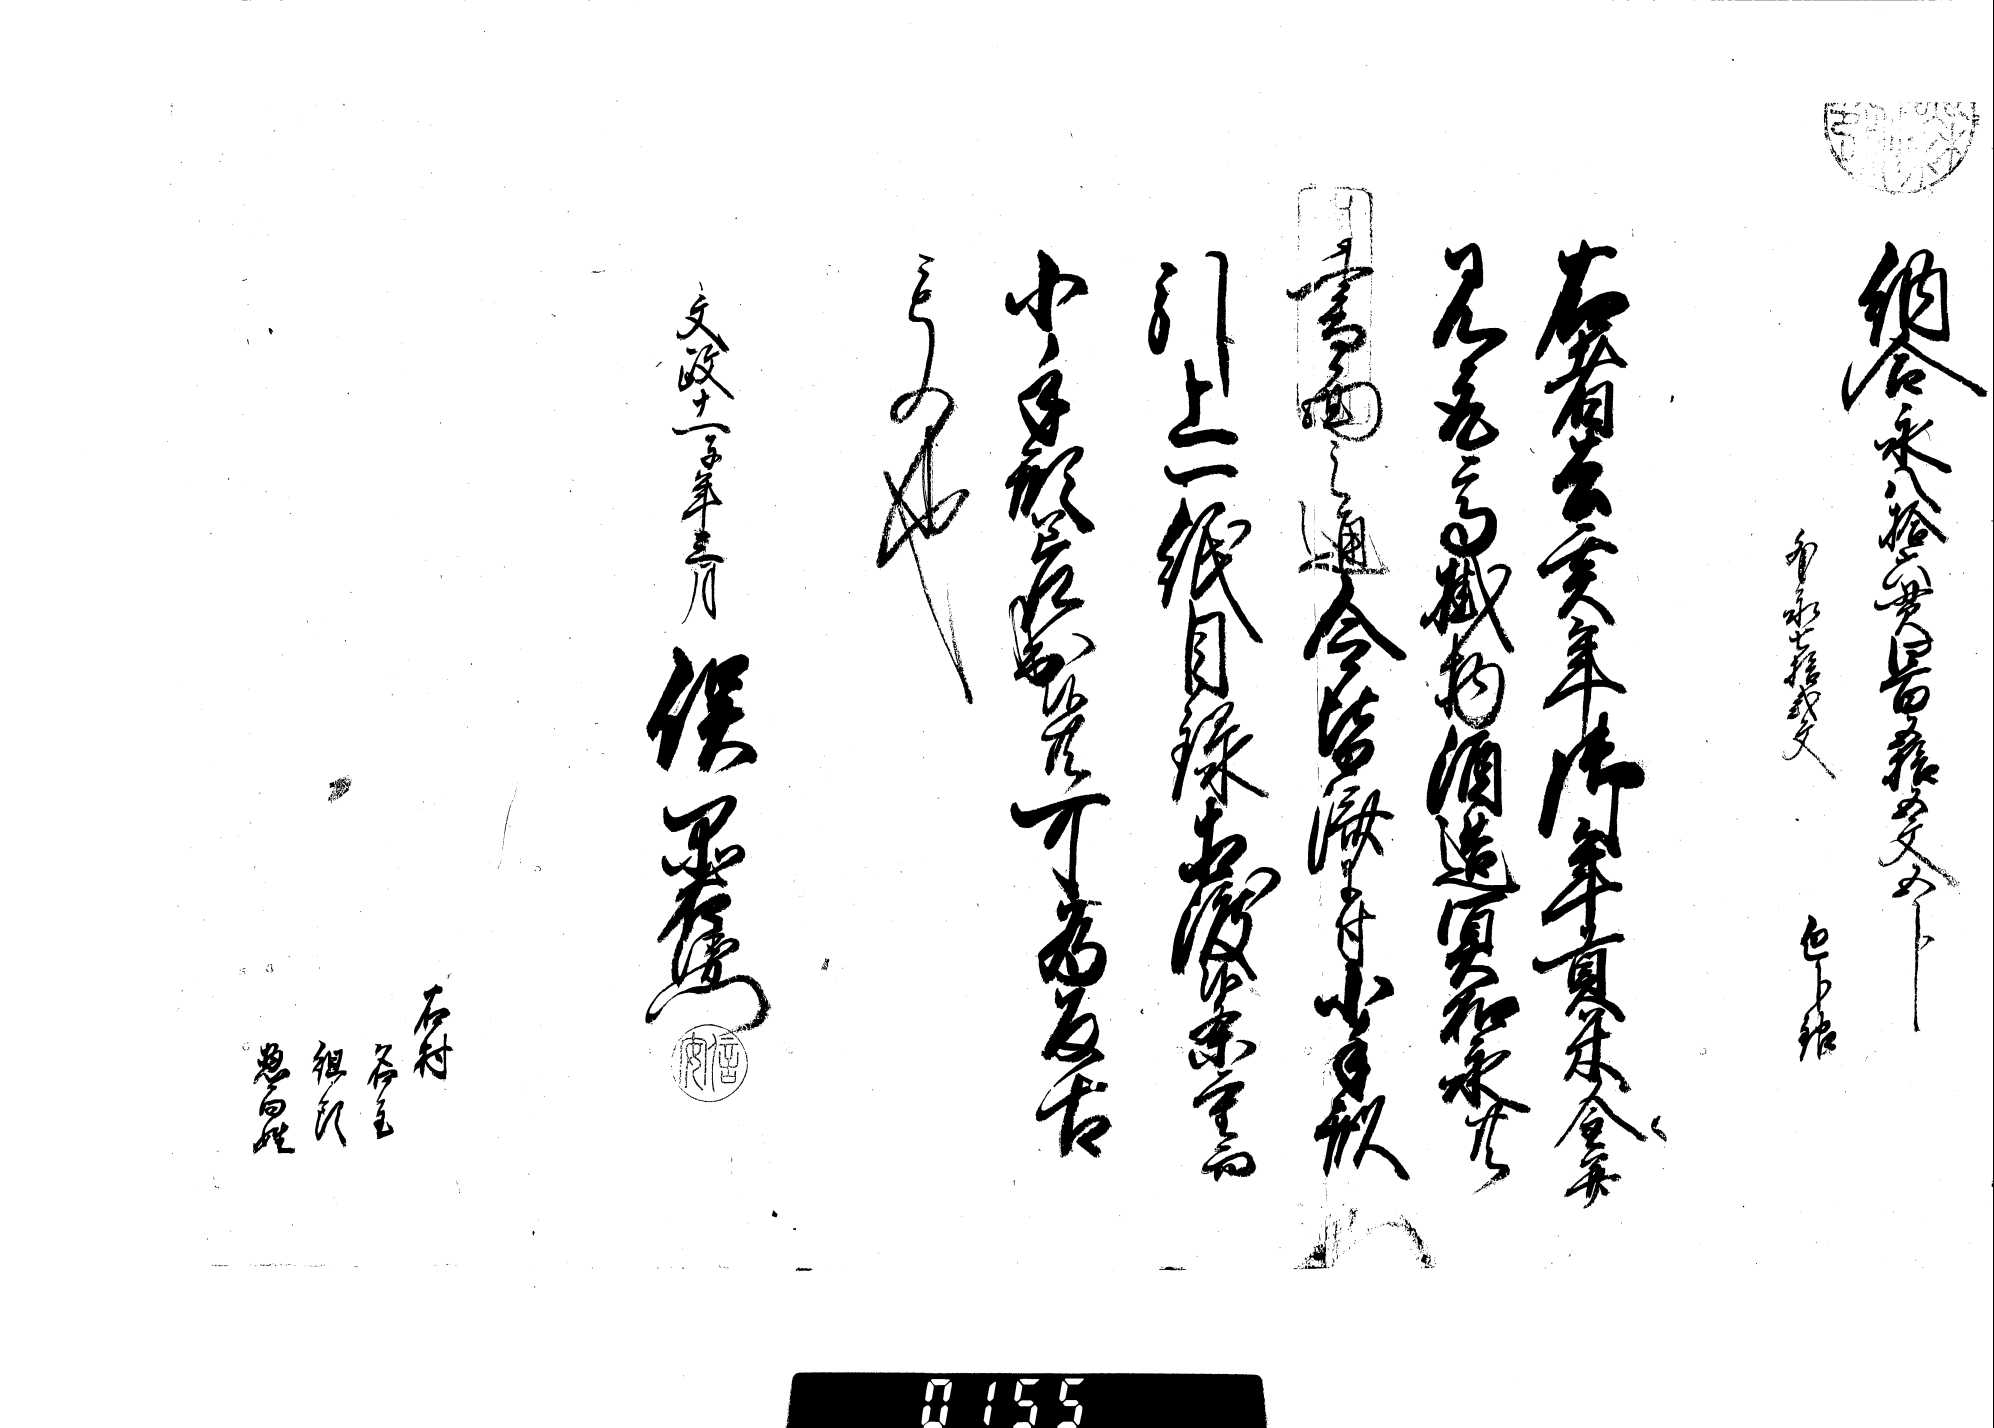 納合永八拾六貫四百五拾五文五分
外永七拾弐文 包分銀
右者去亥年御年貢米金并
見取高掛物酒造冥加永共
書面之通令皆済ニ付小手形
引上一紙目録相渡候条重而
小手形差出候共可為反古
もの也
文政十一子年三月
俣 右衛門
信
右村
名主
組頭
惣百姓
0155